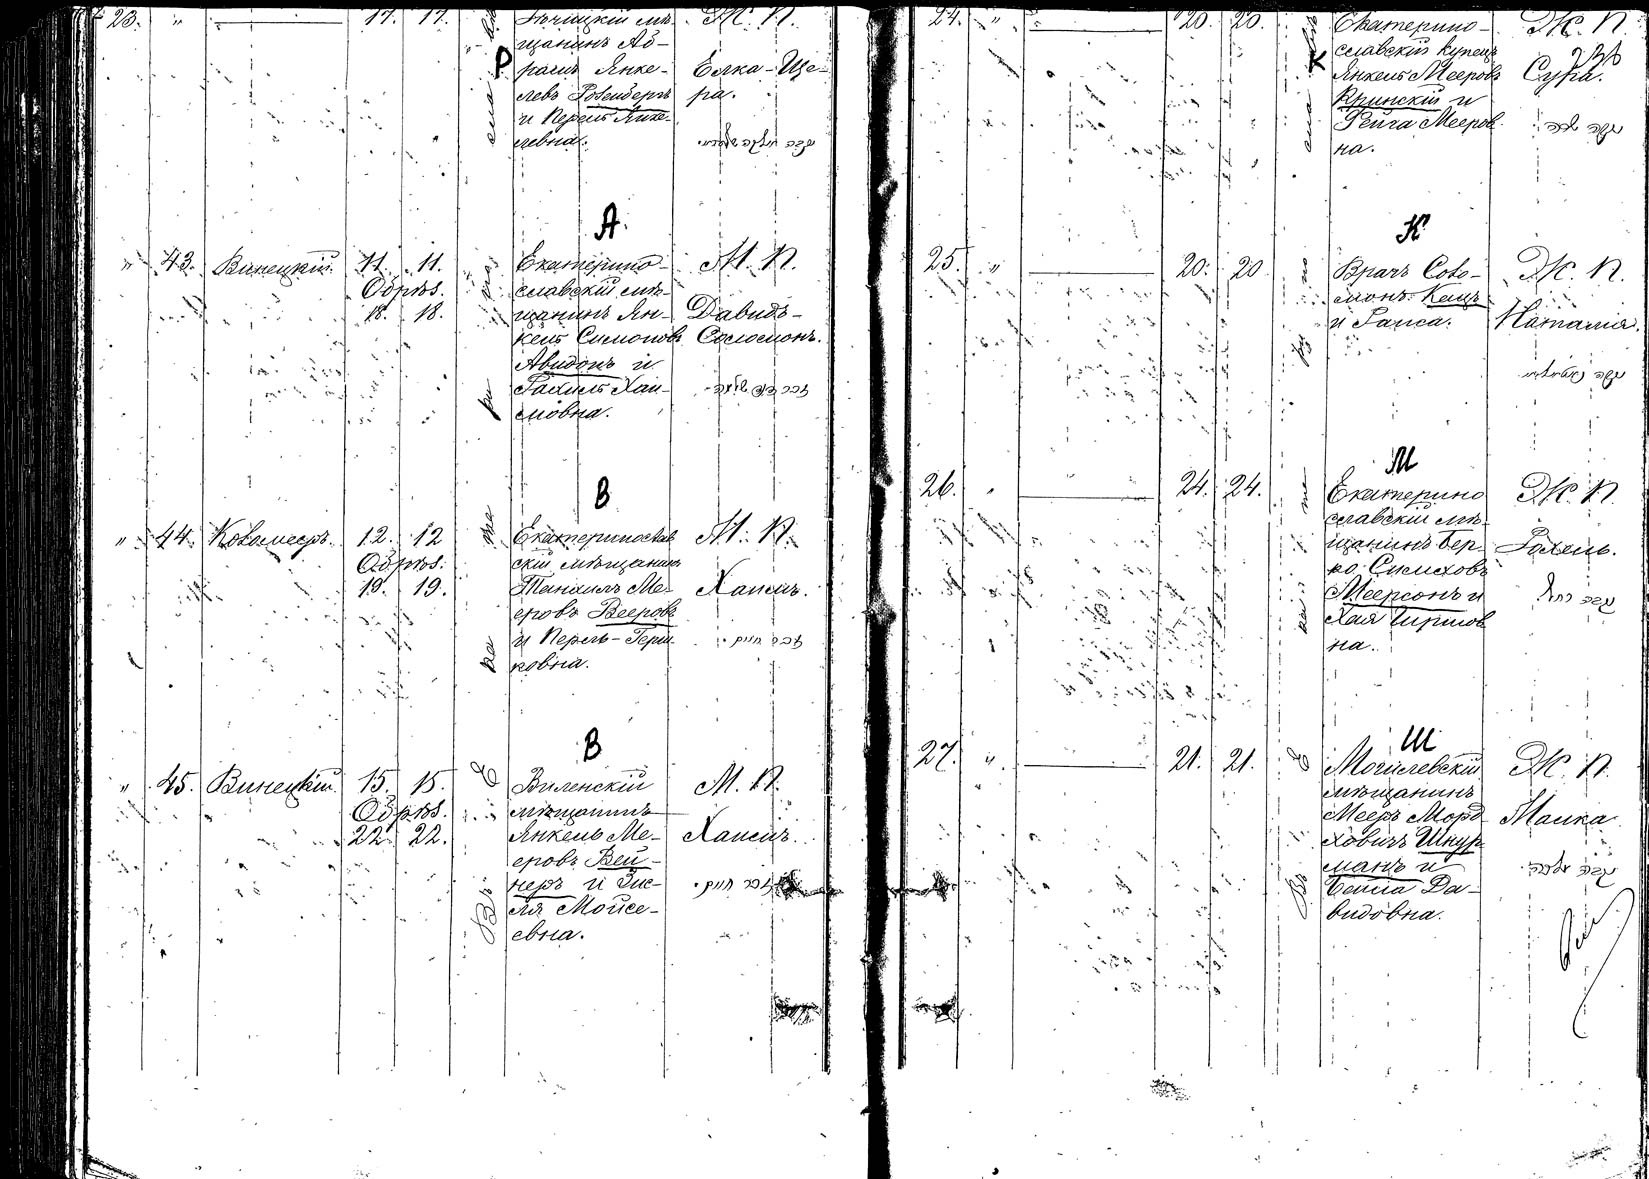 23. " 17. 17.
мѣ-
щанинъ Аб-
рамъ Янке-
левъ Розенбергъ
и Перель Янке-
левна.
Ж. П.
Елка-Ще-
ра.
Р
А
" 43. Винецкій. 11. 11.
Обрѣз.
18. 18.
Екатерино-
славскій мѣ-
щанинъ Ян-
кель Симоновъ
Авидонъ и
Рахиль Хаи-
мовна.
М. П.
Давидъ-
Соломонъ.
В
" 44. 12. 12
Обрѣз.
19. 19.
Екатеринослав
скій мѣщанинъ
Танхилъ Ме-
еровъ Вееровъ
и Перль-Герш
ковна.
М. П.
Хаимъ.
דכר חיים
В
" 45. Винецкій. 15. 15.
Обрѣз.
22. 22.
Виленскій
мѣщанинъ
Янкель Ме-
еровъ Вей-
неръ и Зис-
ля Мойсе-
евна.
М. П.
Хаимъ.
דכר חיים
24. " 20. 20.
К
Екатерино-
славскій купецъ
Янкель Мееровъ
Кринскій и
Рейга Мееров-
на.
Ж. П.
Сура.
נקבה שרה
К
25. " 20. 20
Врачъ Соло-
монъ Кацъ
и Раиса.
Ж. П.
Наталія.
М
26. " 24. 24.
Екатерино
славскій мѣ-
щанинъ Бер-
ко Симховъ
Меерсонъ и
Хая Гиршов
на.
Ж. П.
Рохель.
נקבה רחל
Ш
27. " 21. 21.
Могилевскій
мѣщанинъ
Мееръ Морд
ховичъ Шнур-
манъ и
Бейла Да-
видовна.
Ж. П.
Малка
נקבה מלכה